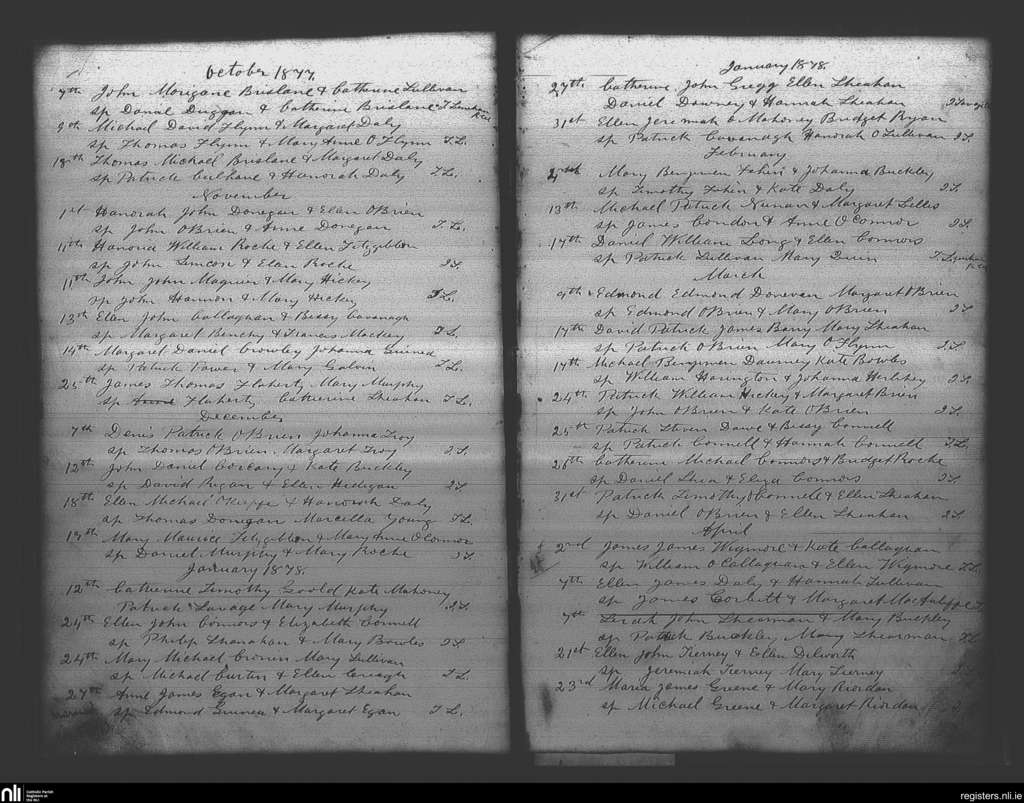 October 1877.
7th John Morigane Brislane & Catherine Sullivan
sp Danal Duggan & Catherine Brislane T Lenihan
9th Michael David Flynn & Margaret Daly
sp Thomas Flynn & Mary Anne O Flynn T.L.
18th Thomas Michael Brislane & Margaret Daly
sp Patrick Culhane & Hanorah Daly T.L.
November
1st Hanorah John Donegan & Elan OBrien
sp John OBrien & Anne Donegan T.L.
11th Hanora William Roche & Ellen Fitzgibbon
sp John Simcon & Elan Roche
11th John John Magner & Mary Hickey
sp John Hannon & Mary Hickey T.L.
13th Ellen John Callaghan & Bessy Cavanagh
sp Margaret Benchy & Francis Mackey T.L.
14th Margaret Daniel Crowley Johanna Guinea
sp Patrick Power & Mary Galvin T.L.
25th James Thomas Flaherty Mary Murphy
sp Flaherty Catherine Sheahan T.L.
December
7th Denis Patrick OBrien Johanna Troy
sp Thomas OBrien Margaret Troy
12th John Daniel & Kate Buckley
sp David Regan & Ellen Hedigan
18th Ellen Michael OKeeffe & Hanorah Daly
sp Thomas Donegan Marcella Young T.L.
19th Mary Maurice Fitzgibbon & Mary Anne OConnor
sp Daniel Murphy & Mary Roche
January 1878.
12th Catherine Timothy Goold Kate Mahoney
Patrick Savage Mary Murphy
24th Ellen John Connors & Elizabeth Connell
sp Philip Shanahan & Mary Bowles
24th Mary Michael Cronin Mary Sullivan
sp Michael Curtin & Ellen Creagh T.L.
27th Anne James Egan & Margaret Sheahan
sp Edmond Guinea & Margaret Egan T.L.
January 1878.
27th Catherine John Gregg Ellen Sheahan
Daniel Downey & Hannah Sheahan
31st Ellen Jeremiah O Mahoney Bridget Ryan
sp Patrick Cavanagh Hanorah O Sullivan
February
Mary Benjamin Fehin & Johanna Buckley
sp Timothy Fehin & Kate Daly
13th Michael Patrick Nunan & Margaret Lillis
sp James Condon & Anne O Connor
17th Daniel William Long & Ellen Connors
sp Patrick Sullivan Mary Quin
March
9th Edmond Edmond Donovan Margaret OBrien
sp Edmond OBrien & Mary OBrien
17th David Patrick James Barry Mary Sheahan
sp Patrick OBrien Mary O Flynn
17th Michael Benjamin Dawney Kate Bowles
sp William Harington & Johanna Herlihey
24th Patrick William Hickey & Margaret Brien
sp John OBrien & Kate OBrien
25th Patrick Steven Dawe & Bessy Connell
sp Patrick Connell & Hannah Connell
26th Catherine Michael Connors & Bridget Roche
sp Daniel Shea & Eliza Connors
31st Patrick Timothy OConnell & Ellen Sheahan
sp Daniel OBrien & Ellen Sheahan
April
2nd James James Wigmore & Kate Callaghan
sp William O Callaghan & Ellen Wigmore T.L.
7th Ellen James Daly & Hannah Sullivan
sp James Corbett & Margaret MacAuliffe
7th Sarah John Shearman & Mary Buckley
sp Patrick Buckley Mary Shearman
21st Ellen John Tierney & Ellen Dilworth
sp Jeremiah Tierney Mary Tierney
23rd Maria James Greene & Mary Riordan
sp Michael Greene & Margaret Riordan
nli
Catholic Parish
Registers at
the NLI
registers.nli.ie